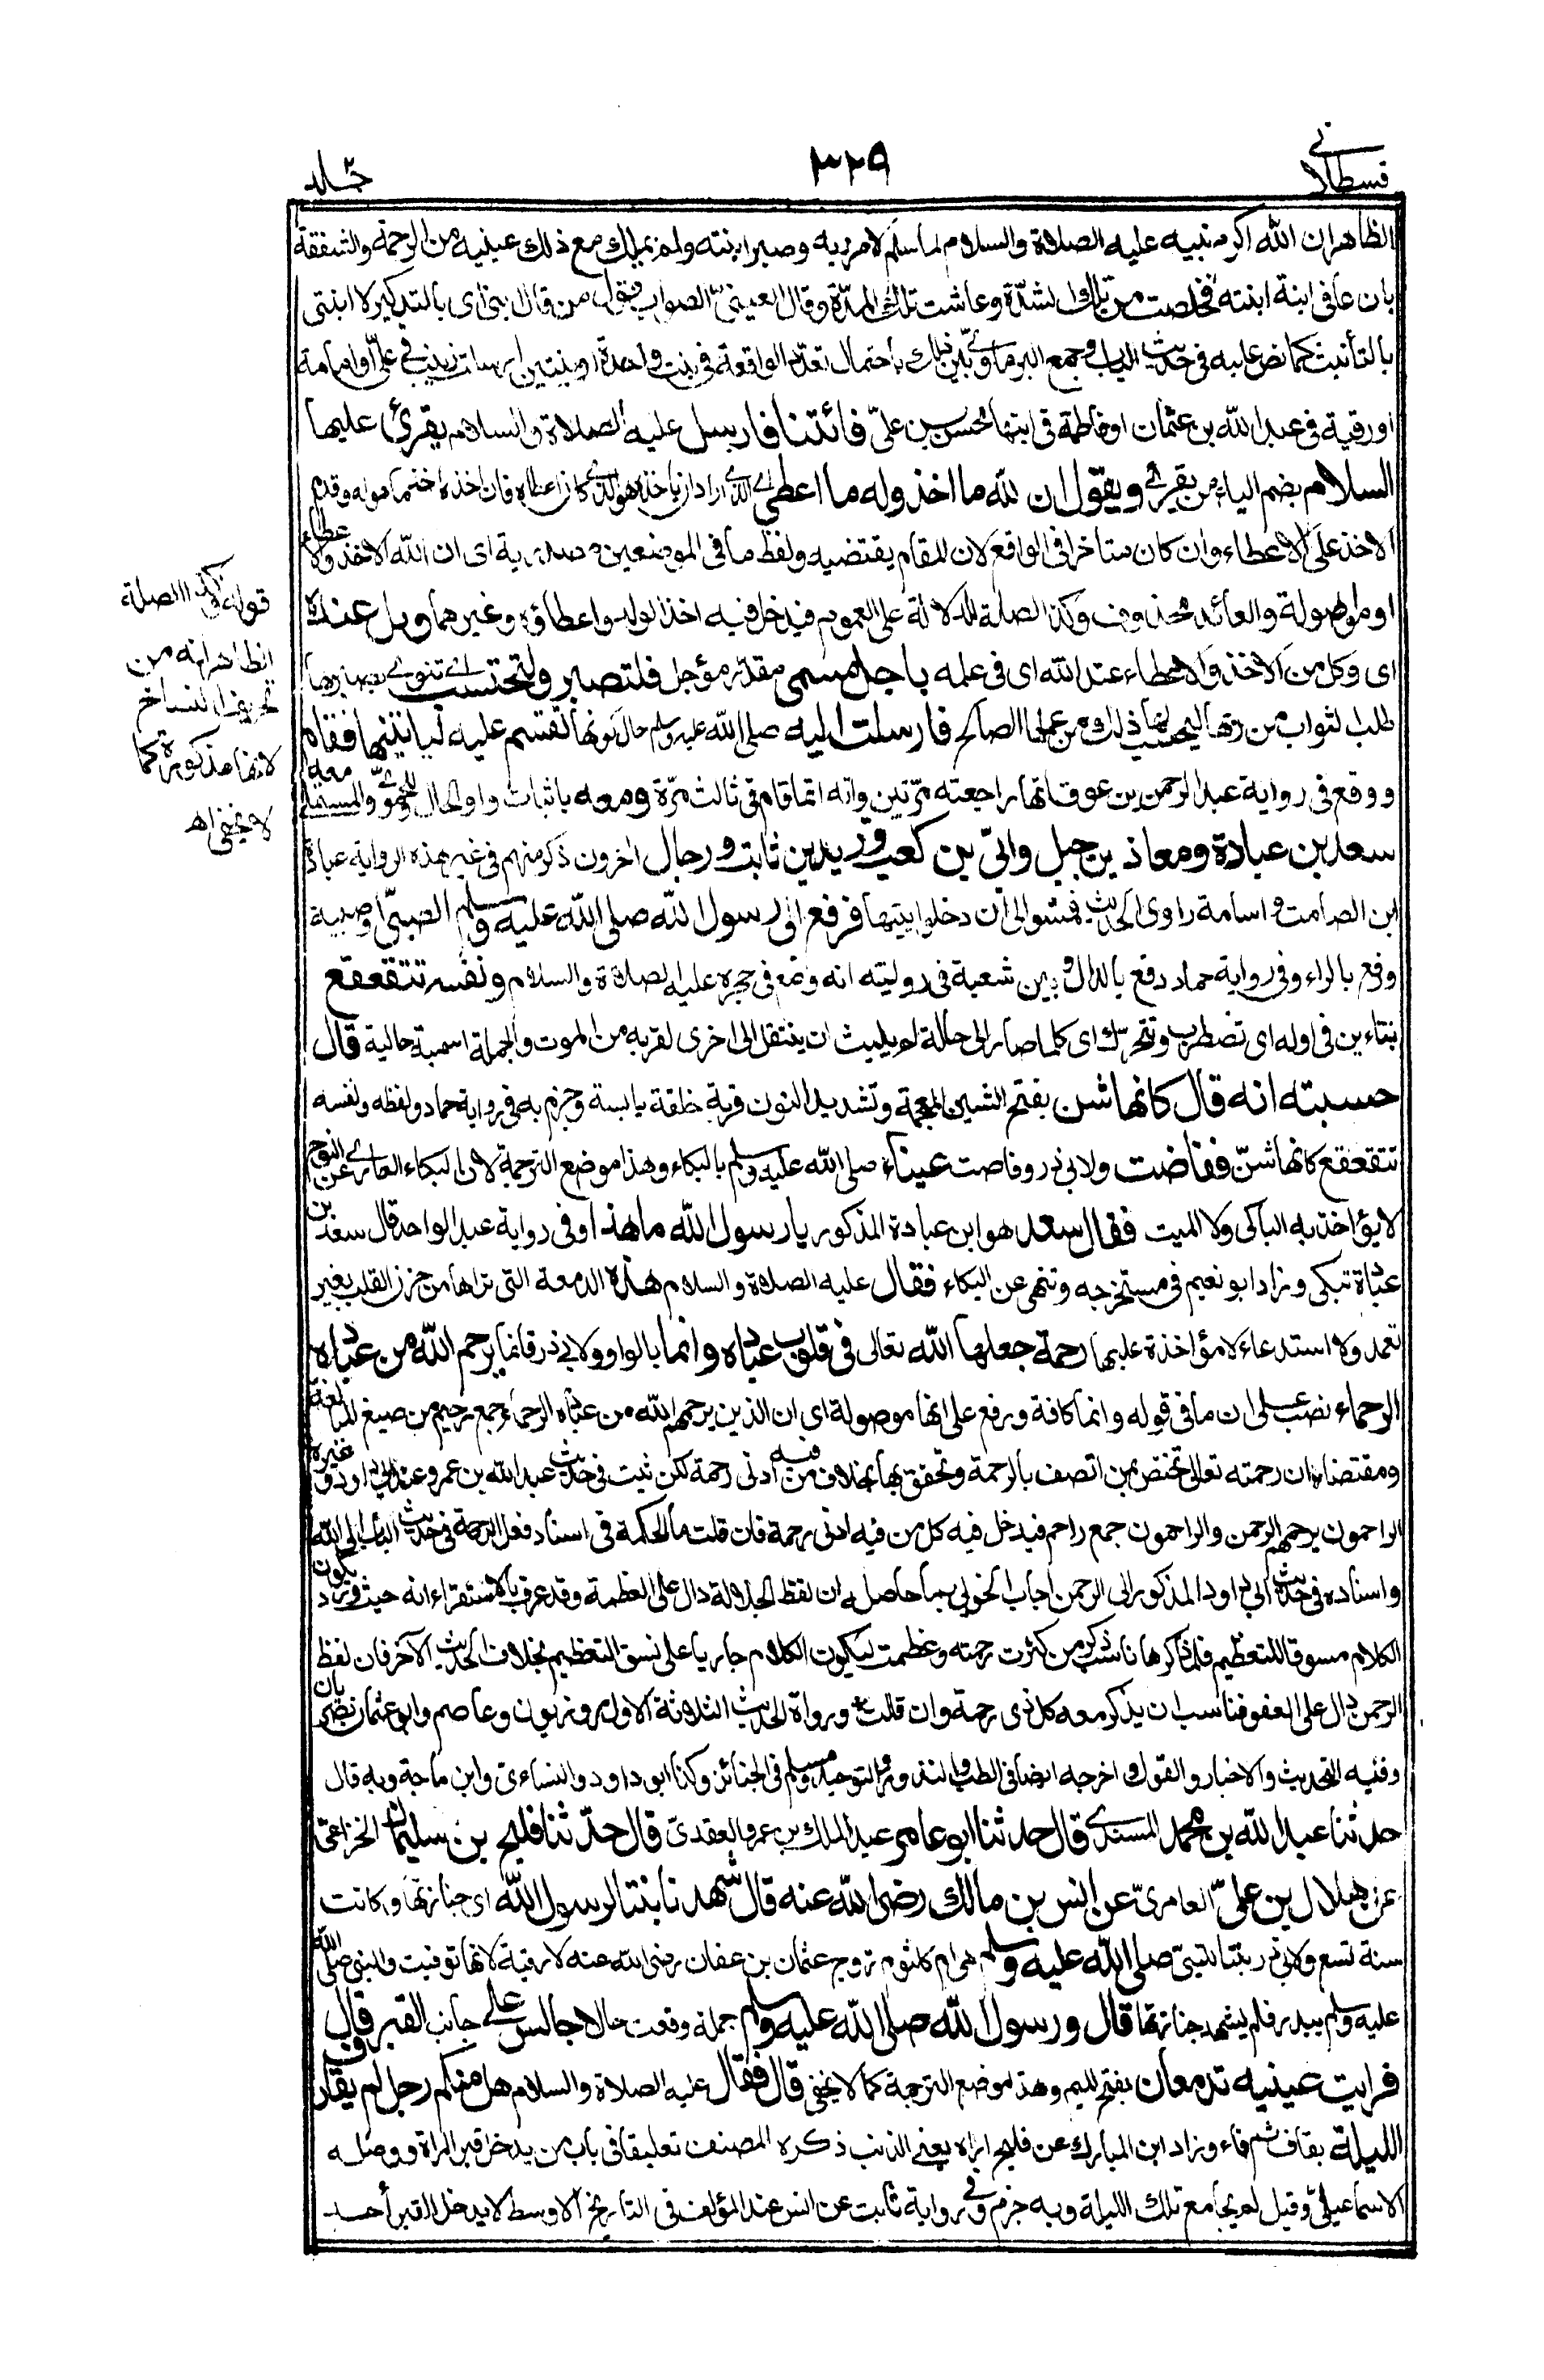 قسطلانی ٣٢٩ جلد
الظاهر ان الله اكرم نبيه عليه الصلاة والسلام لما سلم لامر ربه وصبر ابنته ولم يملك مع ذلك عينيه من الرحمة والشفقة
بان عافى ابنة ابنته فخلصت من تلك الشدة وعاشت تلك المدة وقال العينى الصواب قول من قال ابنى اى بالتذكير لا ابنتى
بالتأنيث كما نص عليه فى حديث الباب وجمع البرماوى بين ذلك باحتمال تعدد الواقعة فى بنت واحدة او بنتين ارسلت زينب فى علىّ او امامة
او رقية فى عبد الله بن عثمان او فاطمة فى ابنها محسن بن علىّ فائتنا فارسل عليه الصلاة والسلام يقرئ عليها
السلام بضم الياء من يقرئ ويقول ان لله ما اخذ وله ما اعطى اى الذى اراد ان ياخذه هو الذى كان اعطاه فان اخذه اخذ ما هو له وقدم
الاخذ على الاعطاء وان كان متاخرا فى الواقع لان المقام يقتضيه ولفظ ما فى الموضعين مصدرية اى ان لله الاخذ والاعطاء
او موصولة والعائد محذوف وكذا الصلة للدلالة على العموم فيدخل فيه اخذ الولد واعطاؤه وغيرهما وكل عنده
اى وكل من الاخذ والاعطاء عند الله اى فى علمه باجل مسمى مقدر مؤجل فلتصبر ولتحتسب اى تنوى بصبرها
طلب الثواب من ربها ليحسب لها ذلك من عملها الصالح فارسلت اليه صلى الله عليه وسلم حال كونها تقسم عليه ليأتينها فقام
ووقع فى رواية عبد الرحمن بن عوف انها راجعته مرّتين وانه انما قام فى ثالث مرّة ومعه باثبات واو الحال للحموى والمستملى معه
سعد بن عبادة ومعاذ بن جبل وابىّ بن كعب وزيد بن ثابت ورجال اخرون ذكر منهم فى غير هذه الرواية عبادة
ابن الصامت واسامة راوى الحديث فمشوا الى ان دخلوا بيتها فرفع الى رسول الله صلى الله عليه وسلم الصبىّ او صبية
ورفع بالراء وفى رواية حماد دفع بالدال وبين شعبة فى روايته انه وضع فى حجره عليه الصلاة والسلام ونفسه تتقعقع
بتاءين فى اوله اى تضطرب وتتحرّك اى كلما صار الى حالة لم يلبث ان ينتقل الى اخرى لقربه من الموت والجملة اسمية حالية قال
حسبته انه قال كانها شن بفتح الشين المعجمة وتشديد النون قربة خلقة يابسة وجزم به فى رواية حماد ولفظه ونفسه
تتقعقع كانها شنّ ففاضت ولابى ذر وفاضت عيناه صلى الله عليه وسلم بالبكاء وهذا موضع الترجمة لان البكاء العارى عن النوح
لا يؤاخذ به الباكى ولا الميت فقال سعد هو ابن عبادة المذكور يا رسول الله ما هذا وفى رواية عبد الواحد قال سعد بن
عبادة تبكى وزاد ابو نعيم فى مستخرجه وتنهى عن البكاء فقال عليه الصلاة والسلام هذه الدمعة التى تراها من حزن القلب بغير
تعمد ولا استدعاء لا مؤاخذة عليها رحمة جعلها الله تعالى فى قلوب عباده وانما بالواو ولابى ذر فانما يرحم الله من عباده
الرحماء نصب على ان ما فى قوله وانما كافة ورفع على انها موصولة اى ان الذين يرحمهم الله من عباده الرحماء جمع رحيم من صيغ المبالغة
ومقتضاه ان رحمته تعالى تختص بمن اتصف بالرحمة وتحقق بها بخلاف من فيه ادنى رحمة لكن ثبت فى حديث عبد الله بن عمرو عند ابى داود وغيره
الراحمون يرحمهم الرحمن والراحمون جمع راحم فيدخل فيه كل من فيه ادنى رحمة فان قلت ما الحكمة فى اسناد فعل الرحمة فى حديث الباب الى الله
واسناده فى حديث ابى داود المذكور الى الرحمن اجاب الخوبى بما حاصله ان لفظ الجلالة دال على العظمة وقد عرف بالاستقراء انه حيث ورد يكون
الكلام مسوقا للتعظيم فلما ذكرها ناسب ذكر من كثرت رحمته وعظمت ليكون الكلام جاريا على نسق التعظيم بخلاف الحديث الآخر فان لفظ
الرحمن دال على العفو فناسب ان يذكر معه كل ذى رحمة وان قلت ورواة الحديث الثلاثة الاول مروزيون وعاصم وابو عثمان بصريان
وفيه التحديث والاخبار والقول واخرجه ايضا فى الطب والنذور والتوحيد ومسلم فى الجنائز وكذا ابو داود والنساءى وابن ماجة وبه قال
حدثنا عبد الله بن محمد المسندى قال حدثنا ابو عامر عبد الملك بن عمرو العقدىّ قال حدّثنا فليح بن سليمان الخزاعىّ
عن هلال بن علىّ العامرىّ عن انس بن مالك رضى الله عنه قال شهدنا بنتا لرسول الله اى جنازتها وكانت
سنة تسع ولابى ذر بنتا للنبىّ صلى الله عليه وسلم هى ام كلثوم زوج عثمان بن عفان رضى الله عنه لا رقية لانها توفيت والنبى صلى الله
عليه وسلم ببدر فلم يشهد جنازتها قال ورسول الله صلى الله عليه وسلم جملة وقعت حالا جالس على جانب القبر قال
فرايت عينيه تدمعان بفتح الميم وهذا موضع الترجمة كما لا يخفى قال فقال عليه الصلاة والسلام هل منكم رجل لم يقارف
الليلة بقاف ثم فاء وزاد ابن المبارك عن فليح اراه يعنى الذنب ذكره المصنف تعليقا فى باب من يدخل قبر المراة ووصله
الاسماعيلىّ وقيل لم يجامع تلك الليلة وبه جزم وفى رواية ثابت عن انس عند المؤلف فى التاريخ الاوسط لا يدخل القبر أحد
قوله وكذا الصلة
الظاهر انه من
تحريف النساخ
لانها مذكورة كما
لا يخفى اهـ